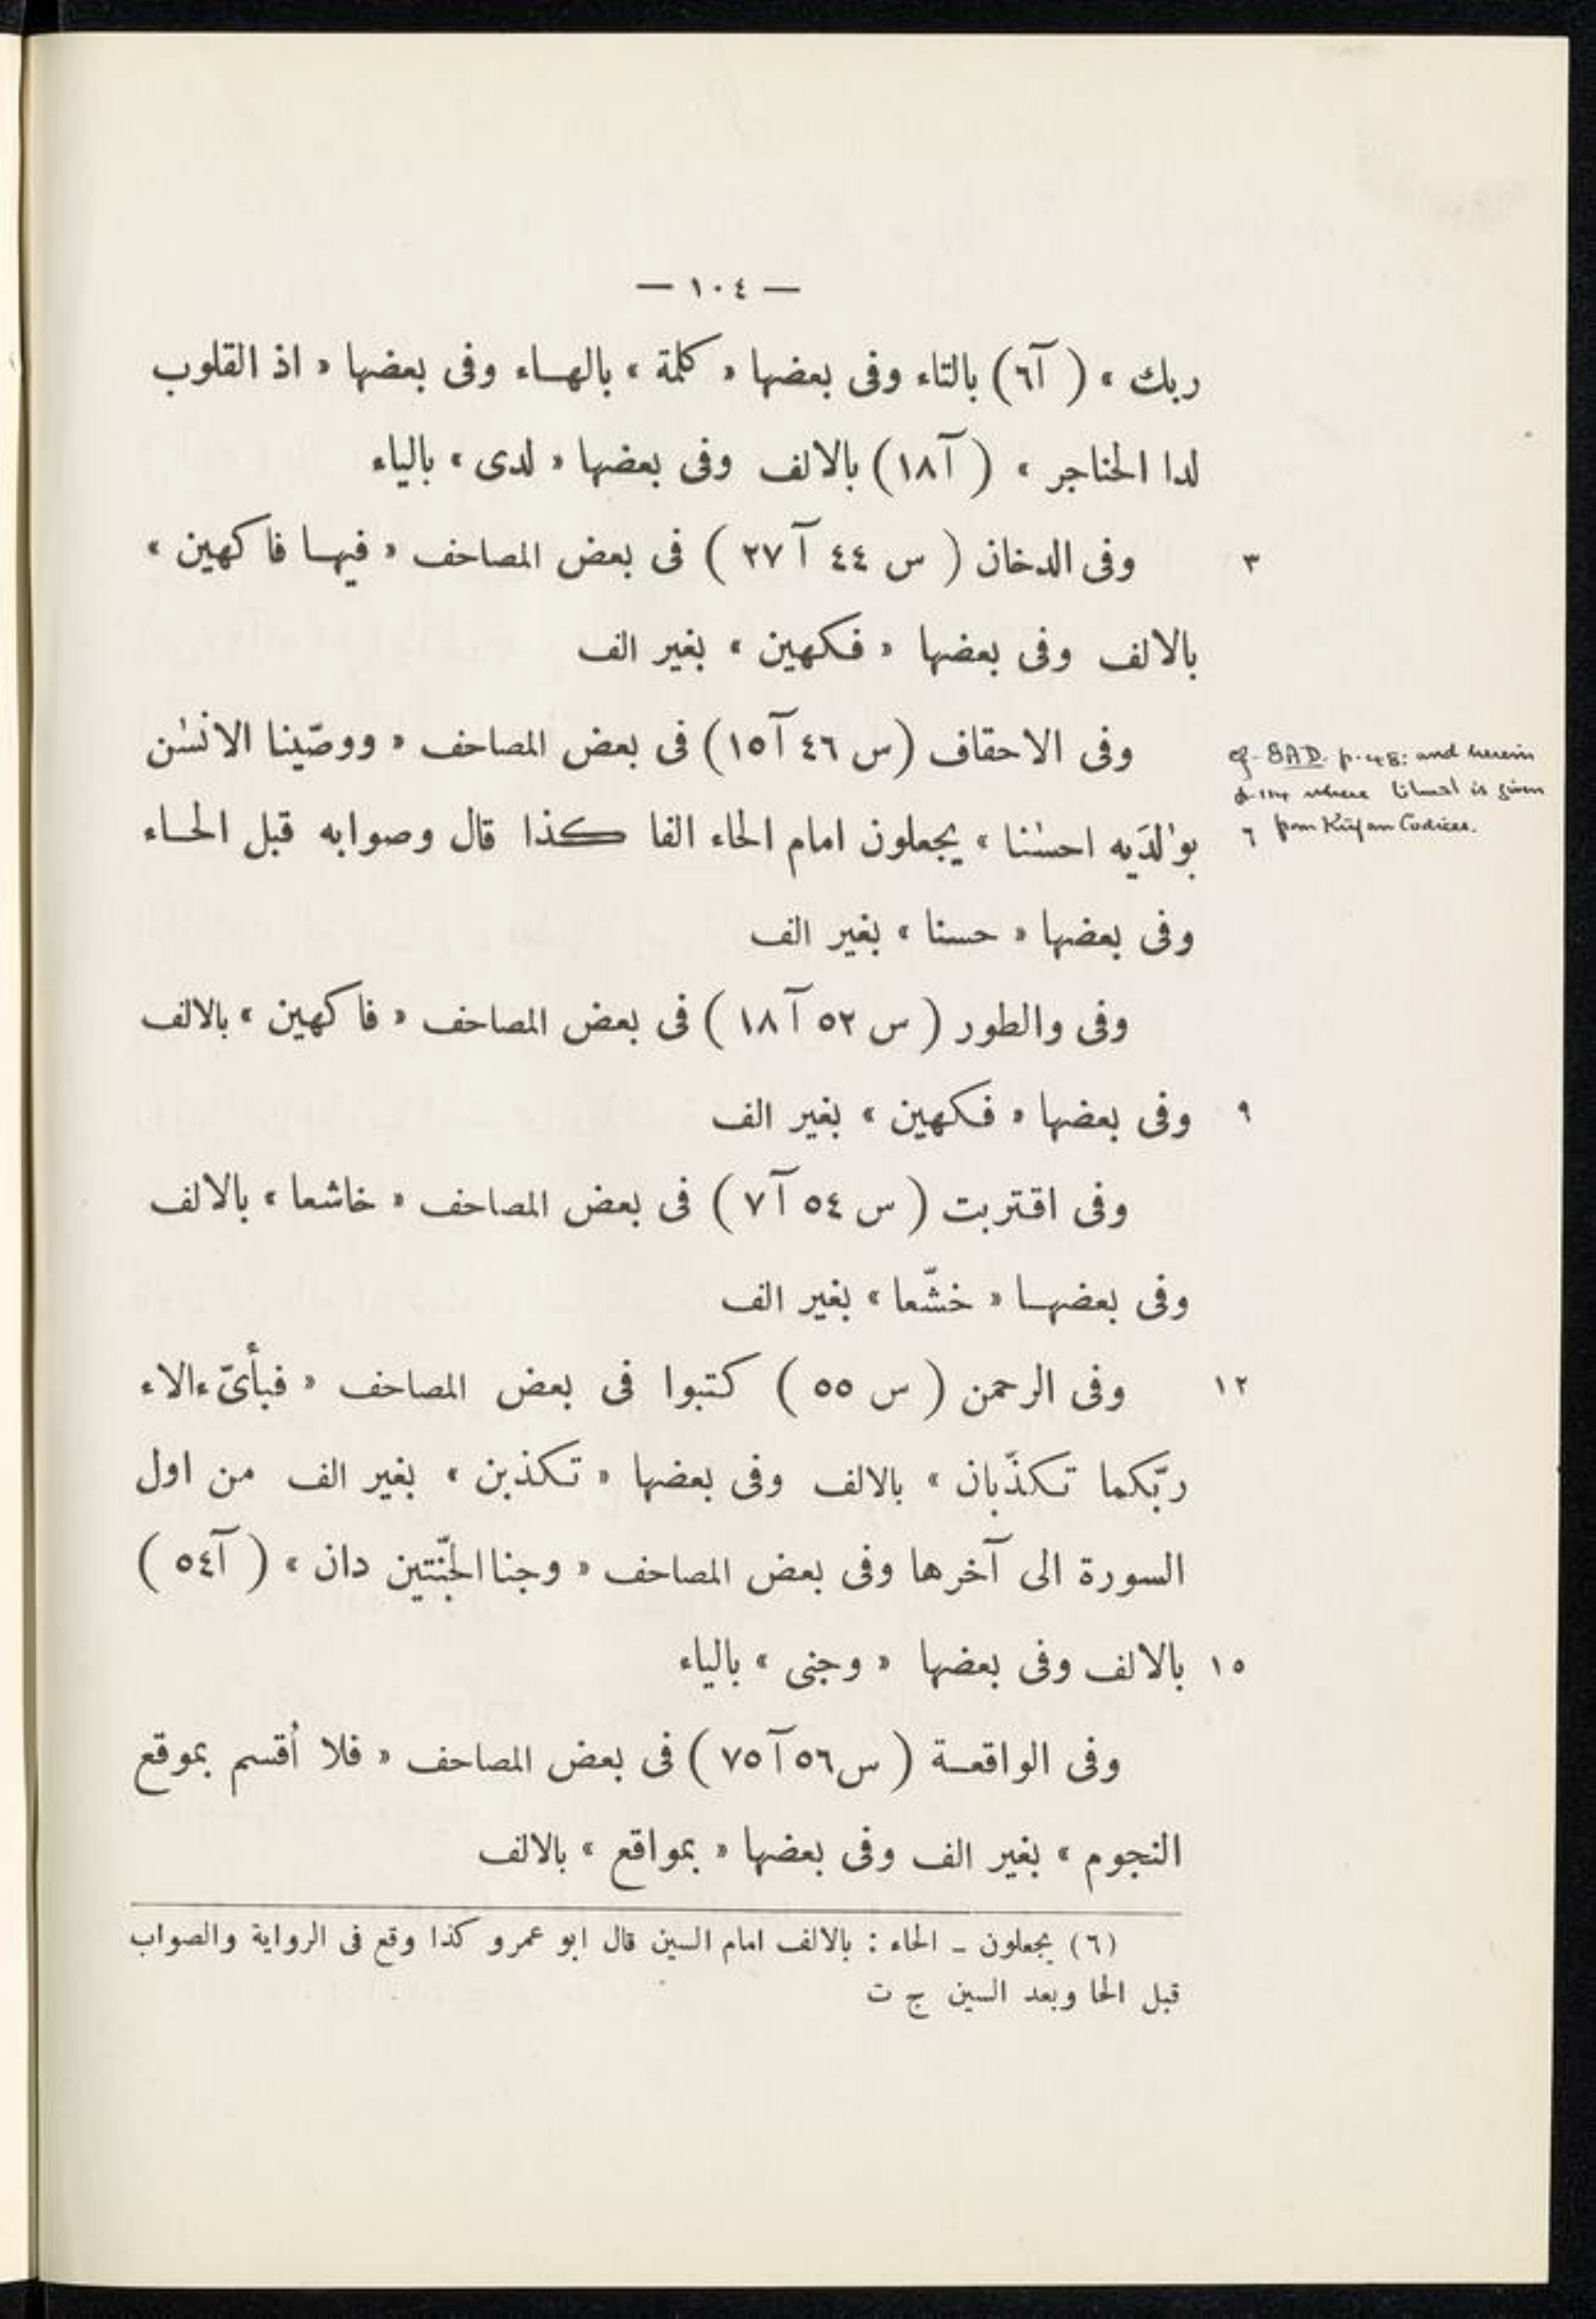 — ١٠٤ —
ربك » ( آ٦) بالتاء وفى بعضها « كلمة » بالهاء وفى بعضها « اذ القلوب
لدا الحناجر » ( آ١٨) بالالف وفى بعضها « لدى » بالياء
٣ وفى الدخان ( س ٤٤ آ ٢٧ ) فى بعض المصاحف « فيها فاكهين »
بالالف وفى بعضها « فكهين » بغير الف
وفى الاحقاف (س ٤٦ آ١٥) فى بعض المصاحف « ووصّينا الانسٰن
cf. SAD. p. 48: and herein
where احسانا is given
from Kūfan Codices.
٦ بوٰلدَيه احسٰنا » يجعلون امام الحاء الفا كذا قال وصوابه قبل الحاء
وفى بعضها « حسنا » بغير الف
وفى والطور ( س ٥٢ آ ١٨ ) فى بعض المصاحف « فاكهين » بالالف
٩ وفى بعضها « فكهين » بغير الف
وفى اقتربت ( س ٥٤ آ ٧ ) فى بعض المصاحف « خاشعا » بالالف
وفى بعضها « خشّعا » بغير الف
١٢ وفى الرحمن ( س ٥٥ ) كتبوا فى بعض المصاحف « فبأىّ ءالاء
ربّكما تكذّبان » بالالف وفى بعضها « تكذبن » بغير الف من اول
السورة الى آخرها وفى بعض المصاحف « وجنا الجنّتين دان » ( آ٥٤ )
١٥ بالالف وفى بعضها « وجنى » بالياء
وفى الواقعة ( س٥٦ آ ٧٥ ) فى بعض المصاحف « فلا أقسم بموقع
النجوم » بغير الف وفى بعضها « بمواقع » بالالف
(٦) يجعلون ـ الحاء : بالالف امام السين قال ابو عمرو كذا وقع فى الرواية والصواب
قبل الحا وبعد السين ج ت